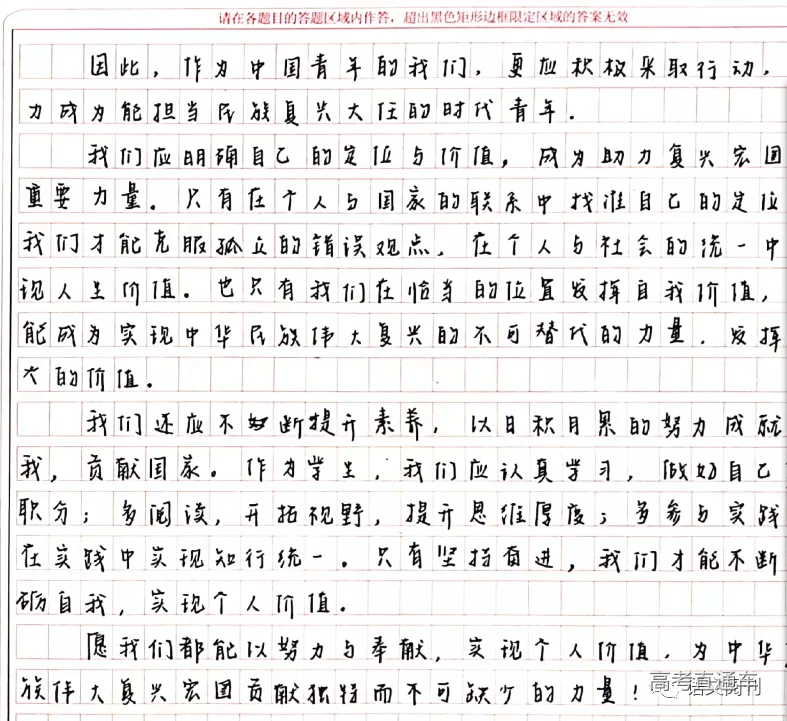 请在各题目的答题区域内作答,超出黑色矩形边框限定区域的答案无效
因此,作为中国青年的我们,更应积极采取行动,
力成为能担当民族复兴大任的时代青年.
我们应明确自己的定位与价值,成为助力复兴宏图
重要力量。只有在个人与国家的联系中找准自己的定位
我们才能克服孤立的错误观点,在个人与社会的统一中
现人生价值。也只有我们在恰当的位置发挥自我价值,
能成为实现中华民族伟大复兴的不可替代的力量,发挥
大的价值。
我们还应不断提升素养,以日积月累的努力成就
我,贡献国家。作为学生,我们应认真学习,做好自己
职分;多阅读,开拓视野,提升思维厚度;多参与实践
在实践中实现知行统一。只有坚持奋进,我们才能不断
砺自我,实现个人价值。
愿我们都能以努力与奉献,实现个人价值,为中华
族伟大复兴宏图贡献独特而不可缺少的力量!
高考直通车